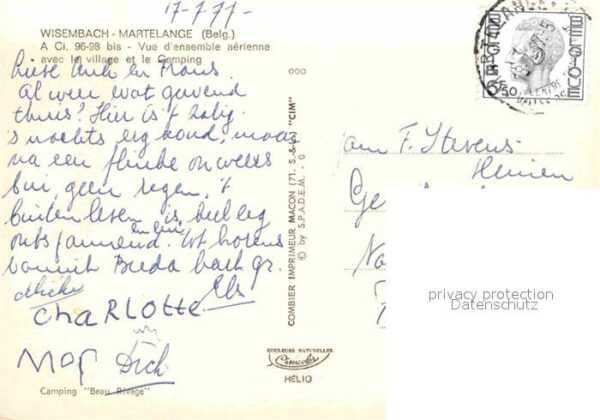 17-7-77-
WISEMBACH - MARTELANGE (Belg.)
A Ci. 96-98 bis - Vue d'ensemble aérienne
avec le village et le Camping
Al weer wat gewend
thuis? Hier is 't
s'nachts erg koud, maar
na een flinke onweers
bui, geen regen, 't
buiten leven is heel erg
ontspannend. en fijn Tot horens
vanuit Breda
Els
CHARLOTTE
Dick
Camping "Beau Rivage"
COMBIER IMPRIMEUR MACON (71. S.&L.) "CIM"
© by S.P.A.D.E.M. - O
COULEURS NATURELLES
Cimcolor
HÉLIO
BELGIQUE
BELGIË
6F50
MARTELANGE
Fam F. Stevens-
privacy protection
Datenschutz